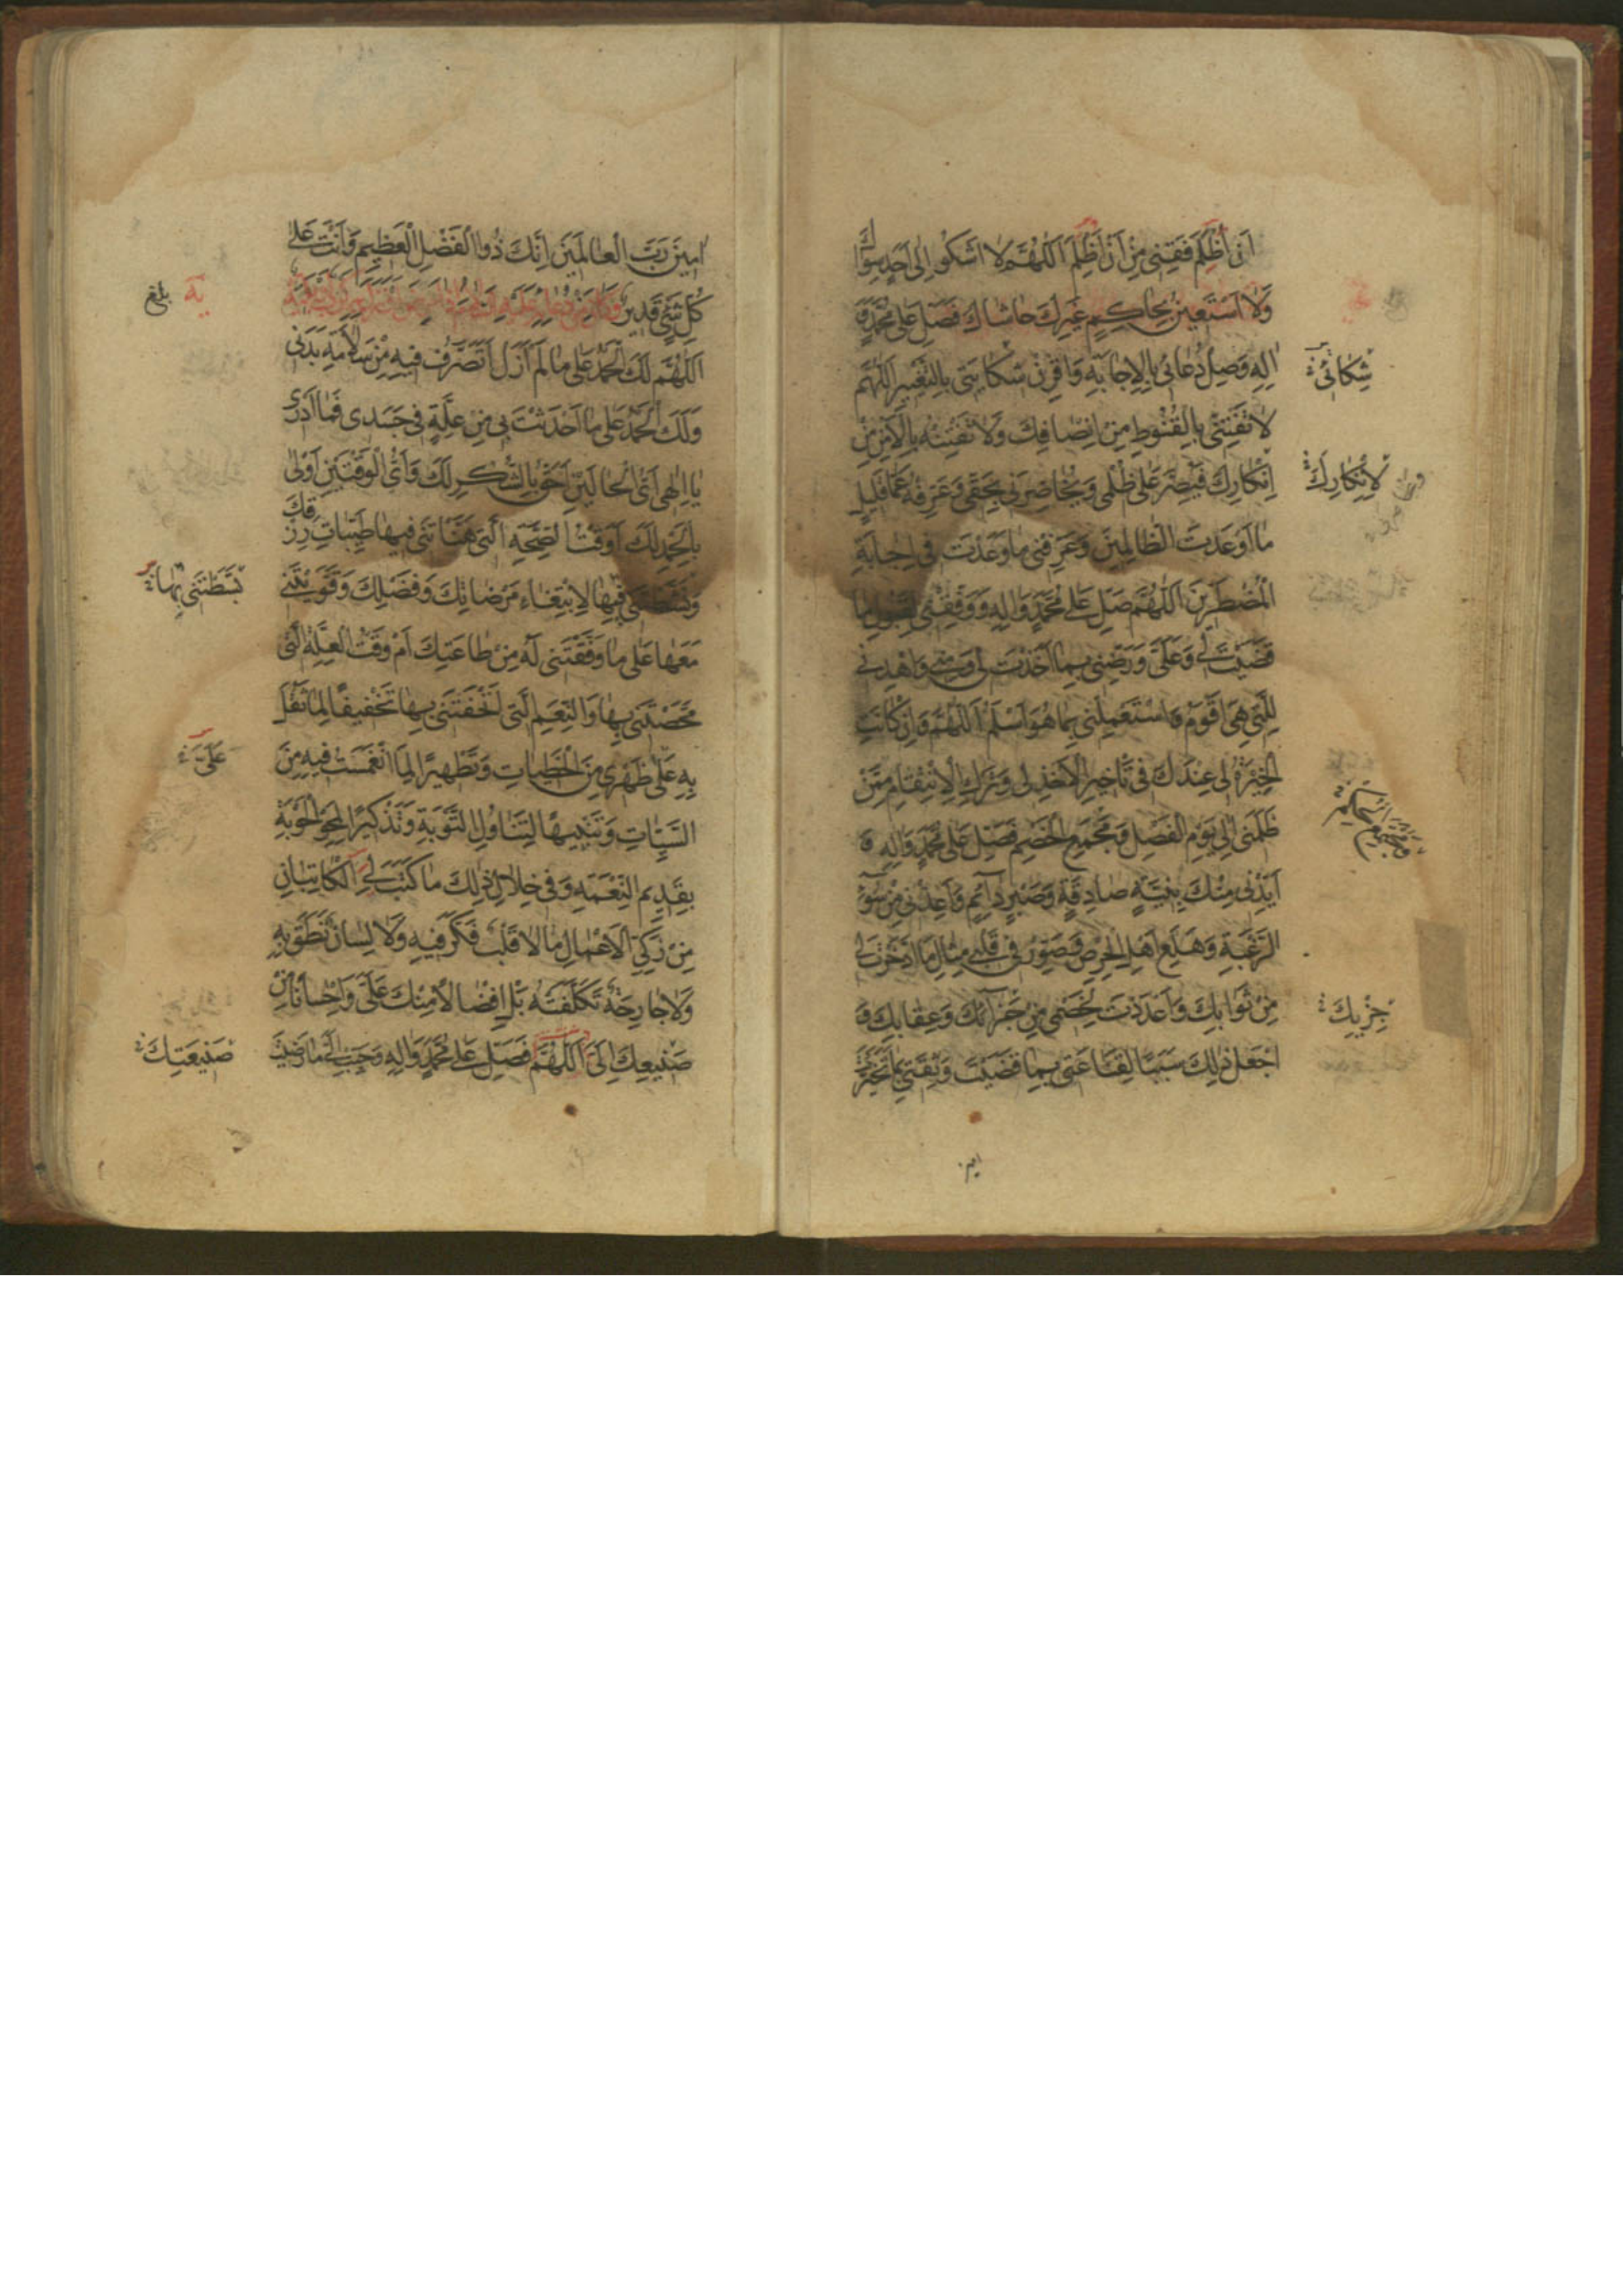 اَنْ اَظْلِمَ فَقِنِی مِنْ اَنْ اُظْلَمَ اَللّٰهُمَّ لا اَشْکُو اِلٰی اَحَدٍ سِوٰاكَ
وَلا اَسْتَعِینُ بِحٰاکِمٍ غَیْرِكَ حٰاشٰاكَ فَصَلِّ عَلٰی مُحَمَّدٍ وَ
اٰلِهِ وَصِلْ دُعٰائی بِالْاِجٰابَةِ وَاقْرِنْ شِکٰایَتی بِالتَّغْییرِ اَللّٰهُمَّ
شَکٰاتی
لا تَفْتِنّی بِالْقُنُوطِ مِنْ اِنْصٰافِكَ وَلا تَفْتِنْهُ بِالْاَمْنِ مِنْ
اِنْکٰارِكَ فَیُصِرَّ عَلٰی ظُلْمی وَیُحٰاضِرَنی بِحَقّی وَعَرِّفْهُ عَمّٰا قَلیلٍ
لِاِنْکٰارِكَ
مٰا اَوْعَدْتَ الظّٰالِمینَ وَعَرِّفْنی مٰا وَعَدْتَ فی اِجٰابَةِ
الْمُضْطَرّینَ اَللّٰهُمَّ صَلِّ عَلٰی مُحَمَّدٍ وَاٰلِهِ وَوَفِّقْنی لِقَبُولِ مٰا
قَضَیْتَ لی وَعَلَیَّ وَرَضِّنی بِمٰا اَخَذْتَ لی وَمِنّی وَاهْدِنی
لِلَّتی هِیَ اَقْوَمُ وَاسْتَعْمِلْنی بِمٰا هُوَ اَسْلَمُ اَللّٰهُمَّ وَاِنْ کٰانَتِ
الْخِیَرَةُ لی عِنْدَكَ فی تَأْخیرِ الْاَخْذِ لی وَتَرْكِ الْاِنْتِقٰامِ مِمَّنْ
ظَلَمَنی اِلٰی یَوْمِ الْفَصْلِ وَمَجْمَعِ الْخَصْمِ فَصَلِّ عَلٰی مُحَمَّدٍ وَاٰلِهِ وَ
اَیِّدْنی مِنْكَ بِنِیَّةٍ صٰادِقَةٍ وَصَبْرٍ دٰائِمٍ وَاَعِذْنی مِنْ سُوۤءِ
الرَّغْبَةِ وَهَلَعِ اَهْلِ الْحِرْصِ وَصَوِّرْ فی قَلْبی مِثٰالَ مَا ادَّخَرْتَ لی
مِنْ ثَوٰابِكَ وَاَعْدَدْتَ لِخَصْمی مِنْ جَزٰائِكَ وَعِقٰابِكَ وَ
اجْعَلْ ذٰلِكَ سَبَبًا لِقَنٰاعَتی بِمٰا قَضَیْتَ وَثِقَتی بِمٰا تَخَیَّرْتَ
امین
اٰمینَ رَبَّ الْعٰالَمینَ اِنَّكَ ذُو الْفَضْلِ الْعَظیمِ وَاَنْتَ عَلٰی
کُلِّ شَیْءٍ قَدیرٌ
یه
بلغ
اَللّٰهُمَّ لَكَ الْحَمْدُ عَلٰی مٰا لَمْ اَزَلْ اَتَصَرَّفُ فیهِ مِنْ سَلٰامَةِ بَدَنی
وَلَكَ الْحَمْدُ عَلٰی مٰا اَحْدَثْتَ بی مِنْ عِلَّةٍ فی جَسَدی فَمٰا اَدْری
یٰا اِلٰهی اَیُّ الْحٰالَیْنِ اَحَقُّ بِالشُّکْرِ لَكَ وَاَیُّ الْوَقْتَیْنِ اَوْلٰی
بِالْحَمْدِ لَكَ اَوَقْتُ الصِّحَّةِ الَّتی هَنَّأْتَنی فیهٰا طَیِّبٰاتِ رِزْقِكَ
وَنَشَّطْتَنی فیهٰا لِابْتِغٰاءِ مَرْضٰاتِكَ وَفَضْلِكَ وَقَوَّیْتَنی
بَسَّطْتَنی بِهٰا
مَعَهٰا عَلٰی مٰا وَفَّقْتَنی لَهُ مِنْ طٰاعَتِكَ اَمْ وَقْتُ الْعِلَّةِ الَّتی
مَحَّصْتَنی بِهٰا وَالنِّعَمِ الَّتی اَتْحَفْتَنی بِهٰا تَخْفیفًا لِمٰا ثَقُلَ
بِهِ عَلٰی ظَهْری مِنَ الْخَطیئٰاتِ وَتَطْهیرًا لِمَا انْغَمَسْتُ فیهِ مِنَ
عَلَیَّ
السَّیِّئٰاتِ وَتَنْبیهًا لِتَنٰاوُلِ التَّوْبَةِ وَتَذْکیرًا لِمَحْوِ الْحَوْبَةِ
بِقَدیمِ النِّعْمَةِ وَفی خِلٰالِ ذٰلِكَ مٰا کَتَبَ لِیَ الْکٰاتِبٰانِ
مِنْ زَکِیِّ الْاَعْمٰالِ مٰا لا قَلْبٌ فَکَّرَ فیهِ وَلا لِسٰانٌ نَطَقَ بِهِ
وَلا جٰارِحَةٌ تَکَلَّفَتْهُ بَلْ اِفْضٰالًا مِنْكَ عَلَیَّ وَاِحْسٰانًا مِنْ
صَنیعِكَ اِلَیَّ اَللّٰهُمَّ فَصَلِّ عَلٰی مُحَمَّدٍ وَاٰلِهِ وَحَبِّبْ اِلَیَّ مٰا رَضیتَ
صَنیعَتِكَ